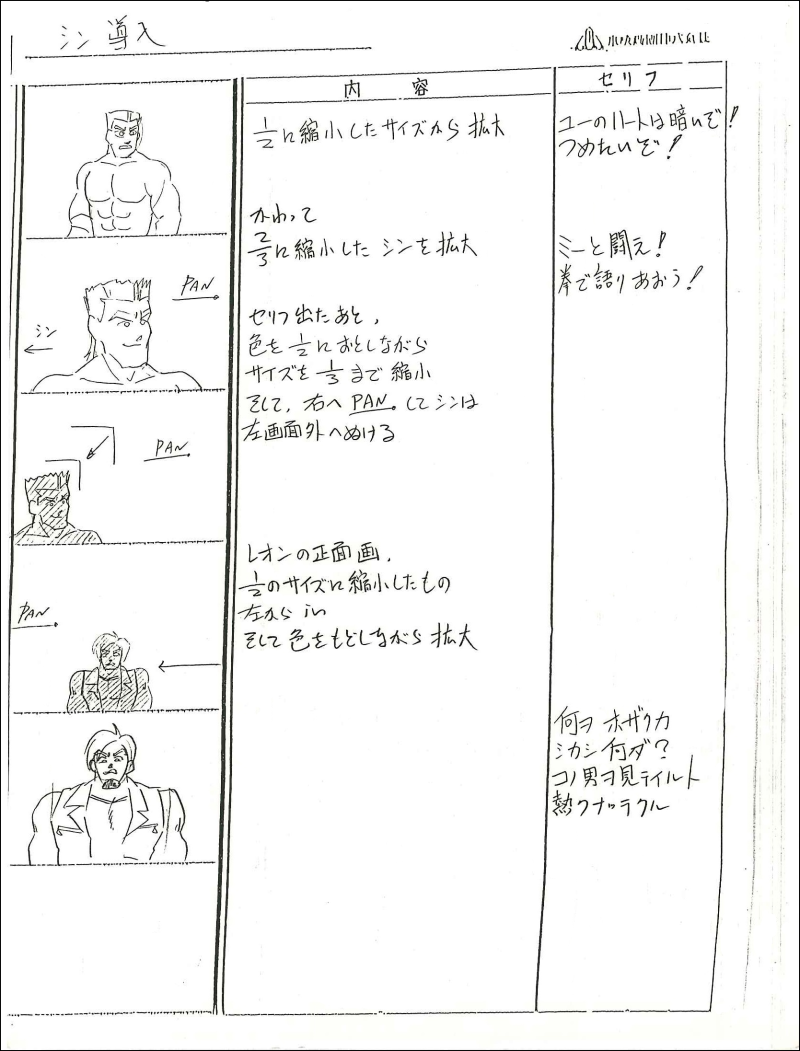 シン 導入
内容
セリフ
1/2に縮小したサイズから 拡大
ユーのハートは暗いぞ!
つめたいぞ!
かわって
2/3に縮小した シンを拡大
ミーと闘え!
拳で語りあおう!
PAN.
シン
セリフ出たあと,
色を 1/2 におとしながら
サイズを 1/3 まで 縮小
そして, 右へ PAN. してシンは
左画面外へぬける
PAN.
レオンの正面画,
1/2のサイズに縮小したもの
左から in
そして色をもどしながら 拡大
PAN.
何ヲ ホザクカ
シカシ 何ダ?
コノ男ヲ見テイルト
熱クナッテクル